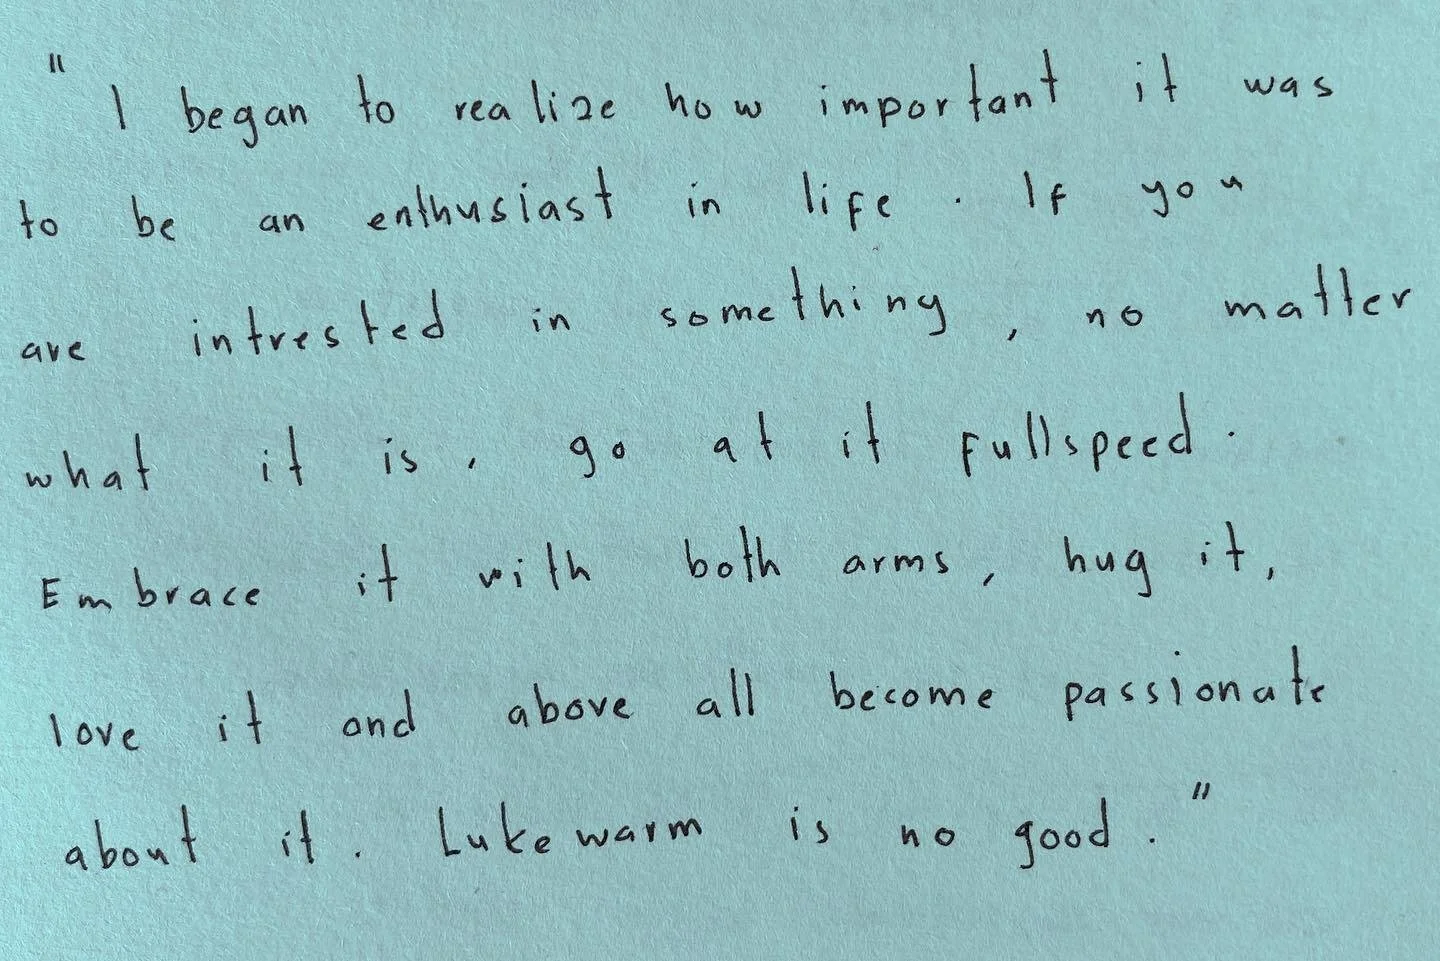 " I began to realize how important it was
to be an enthusiast in life. If you
are intrested in something, no matter
what it is, go at it fullspeed.
Embrace it with both arms, hug it,
love it and above all become passionate
about it. Lukewarm is no good."